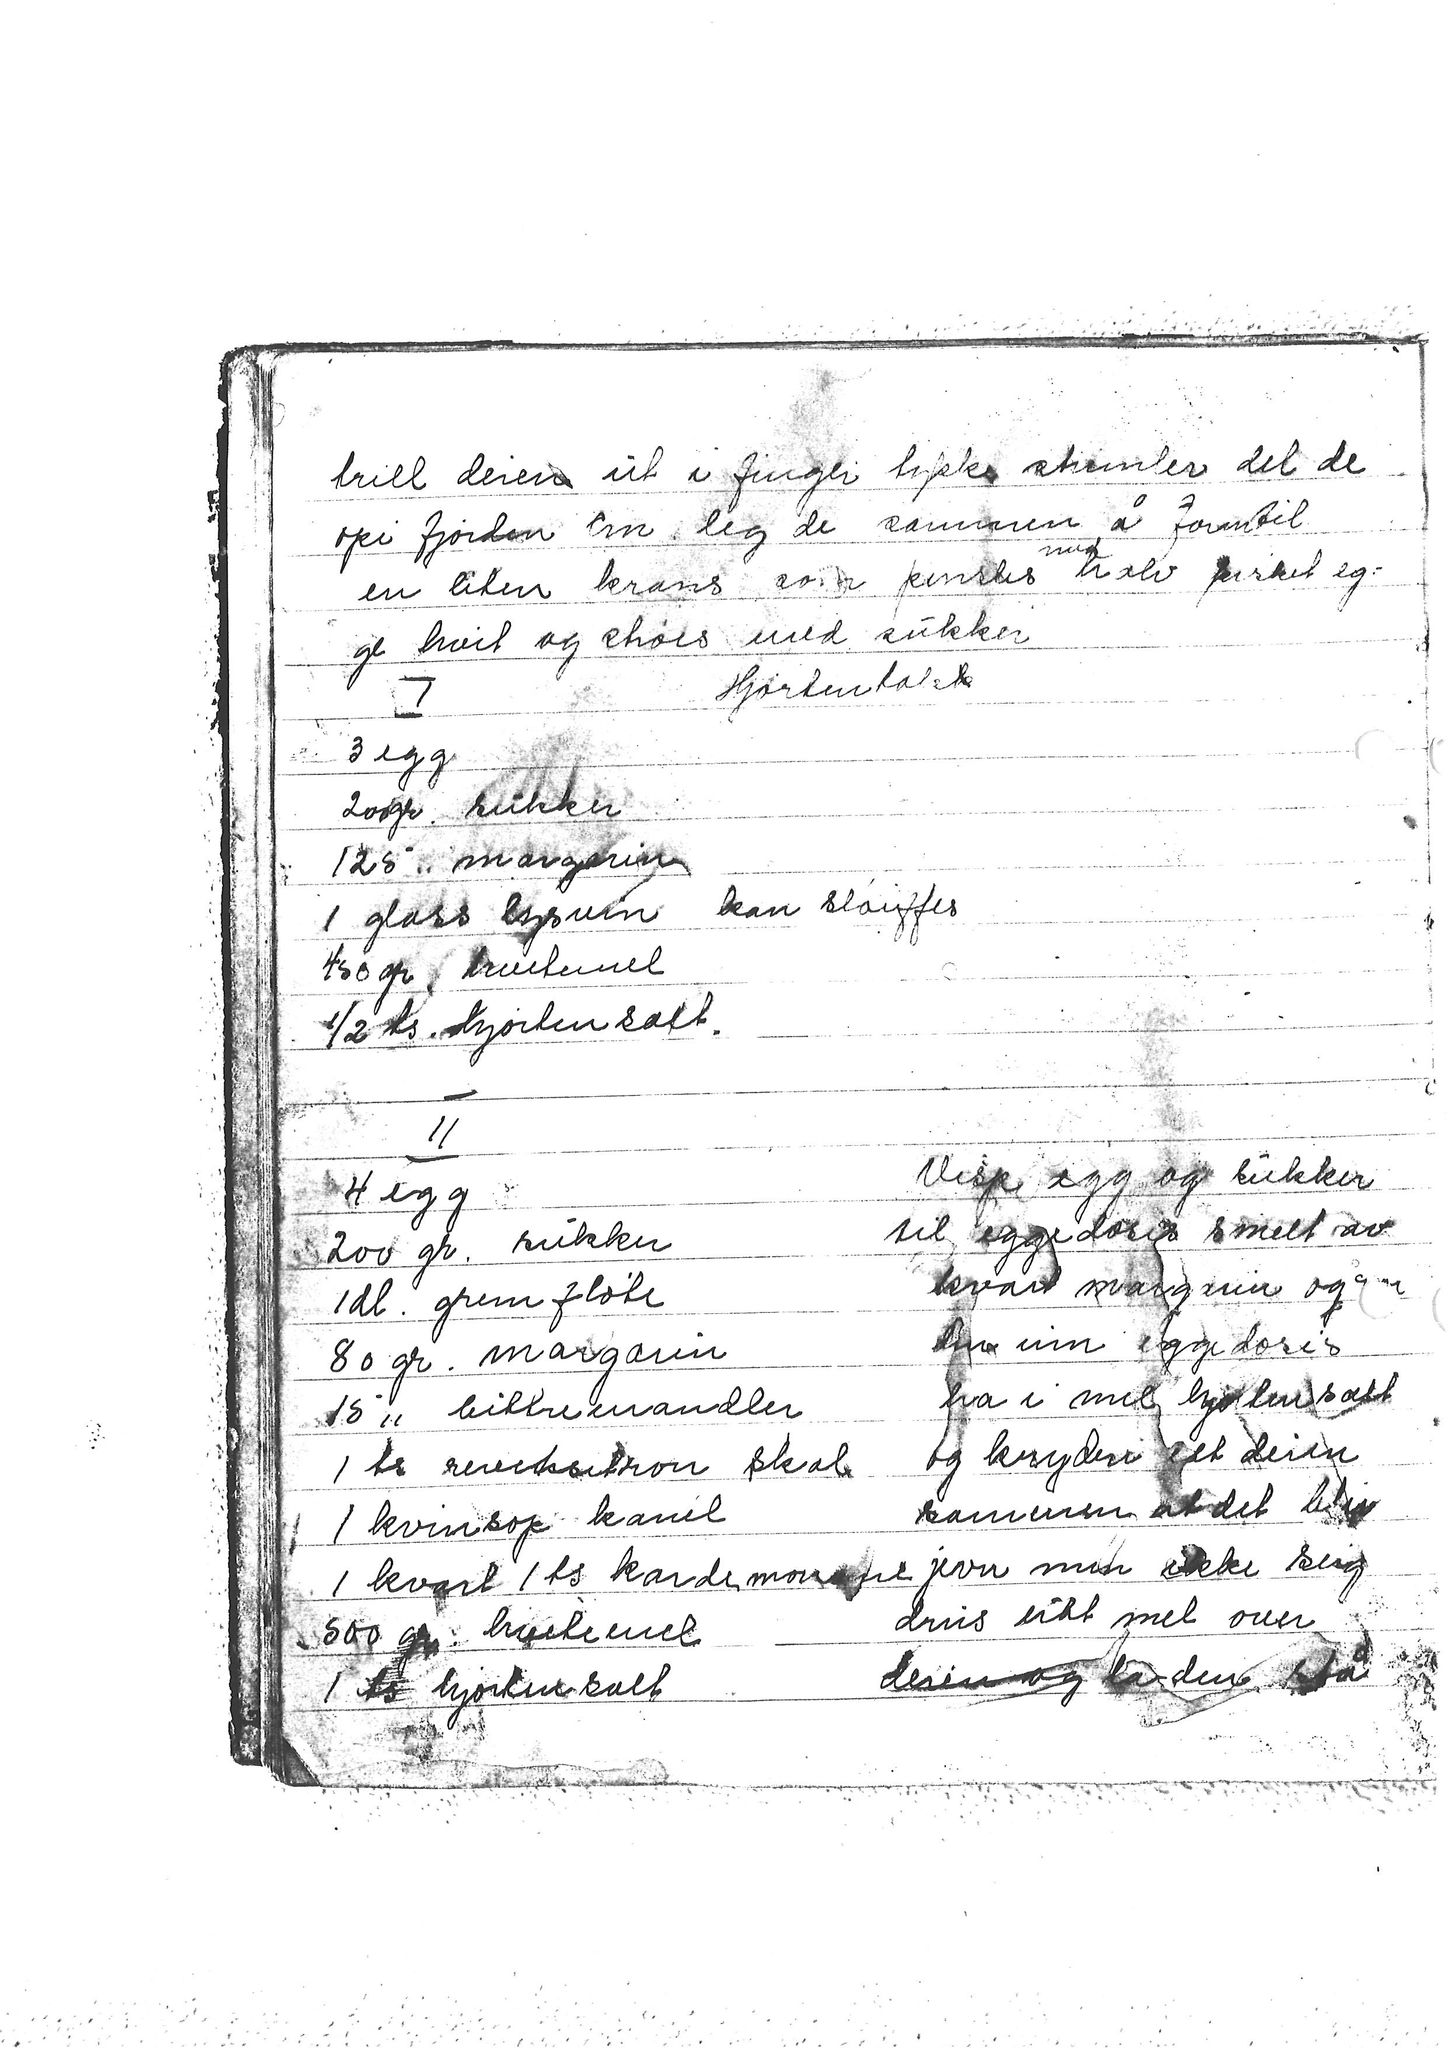 trill deien ut i finger tykke strimler del de
opi fjorden cm leg de sammen å form til
en liten krans som pensles med halv pisket eg=
ge hvit og strøes med sukker
I Hjortentakk
3 egg
200gr. sukker
125 " margarin
1 glass lysvin kan sløiffes
450 gr. hvetemel
1/2 ts. hjortensalt.
II
4 egg
200 gr. sukker
1dl. grem fløte
80 gr. margarin
15 " bittremandler
1 ts revetsitron skal
1 kvinsop kanel
1 kvart 1 ts kardemomme
500 gr. hvetemel
1 ts hjortensalt
Visp egg og sukker
til eggedosis smelt av
kvart margarin og
eggedosis
ha i mel hjortensalt
og kryderi elt deien
sammen at det blir
jevn men ikke seig
drus litt mel over
deien og la den stå